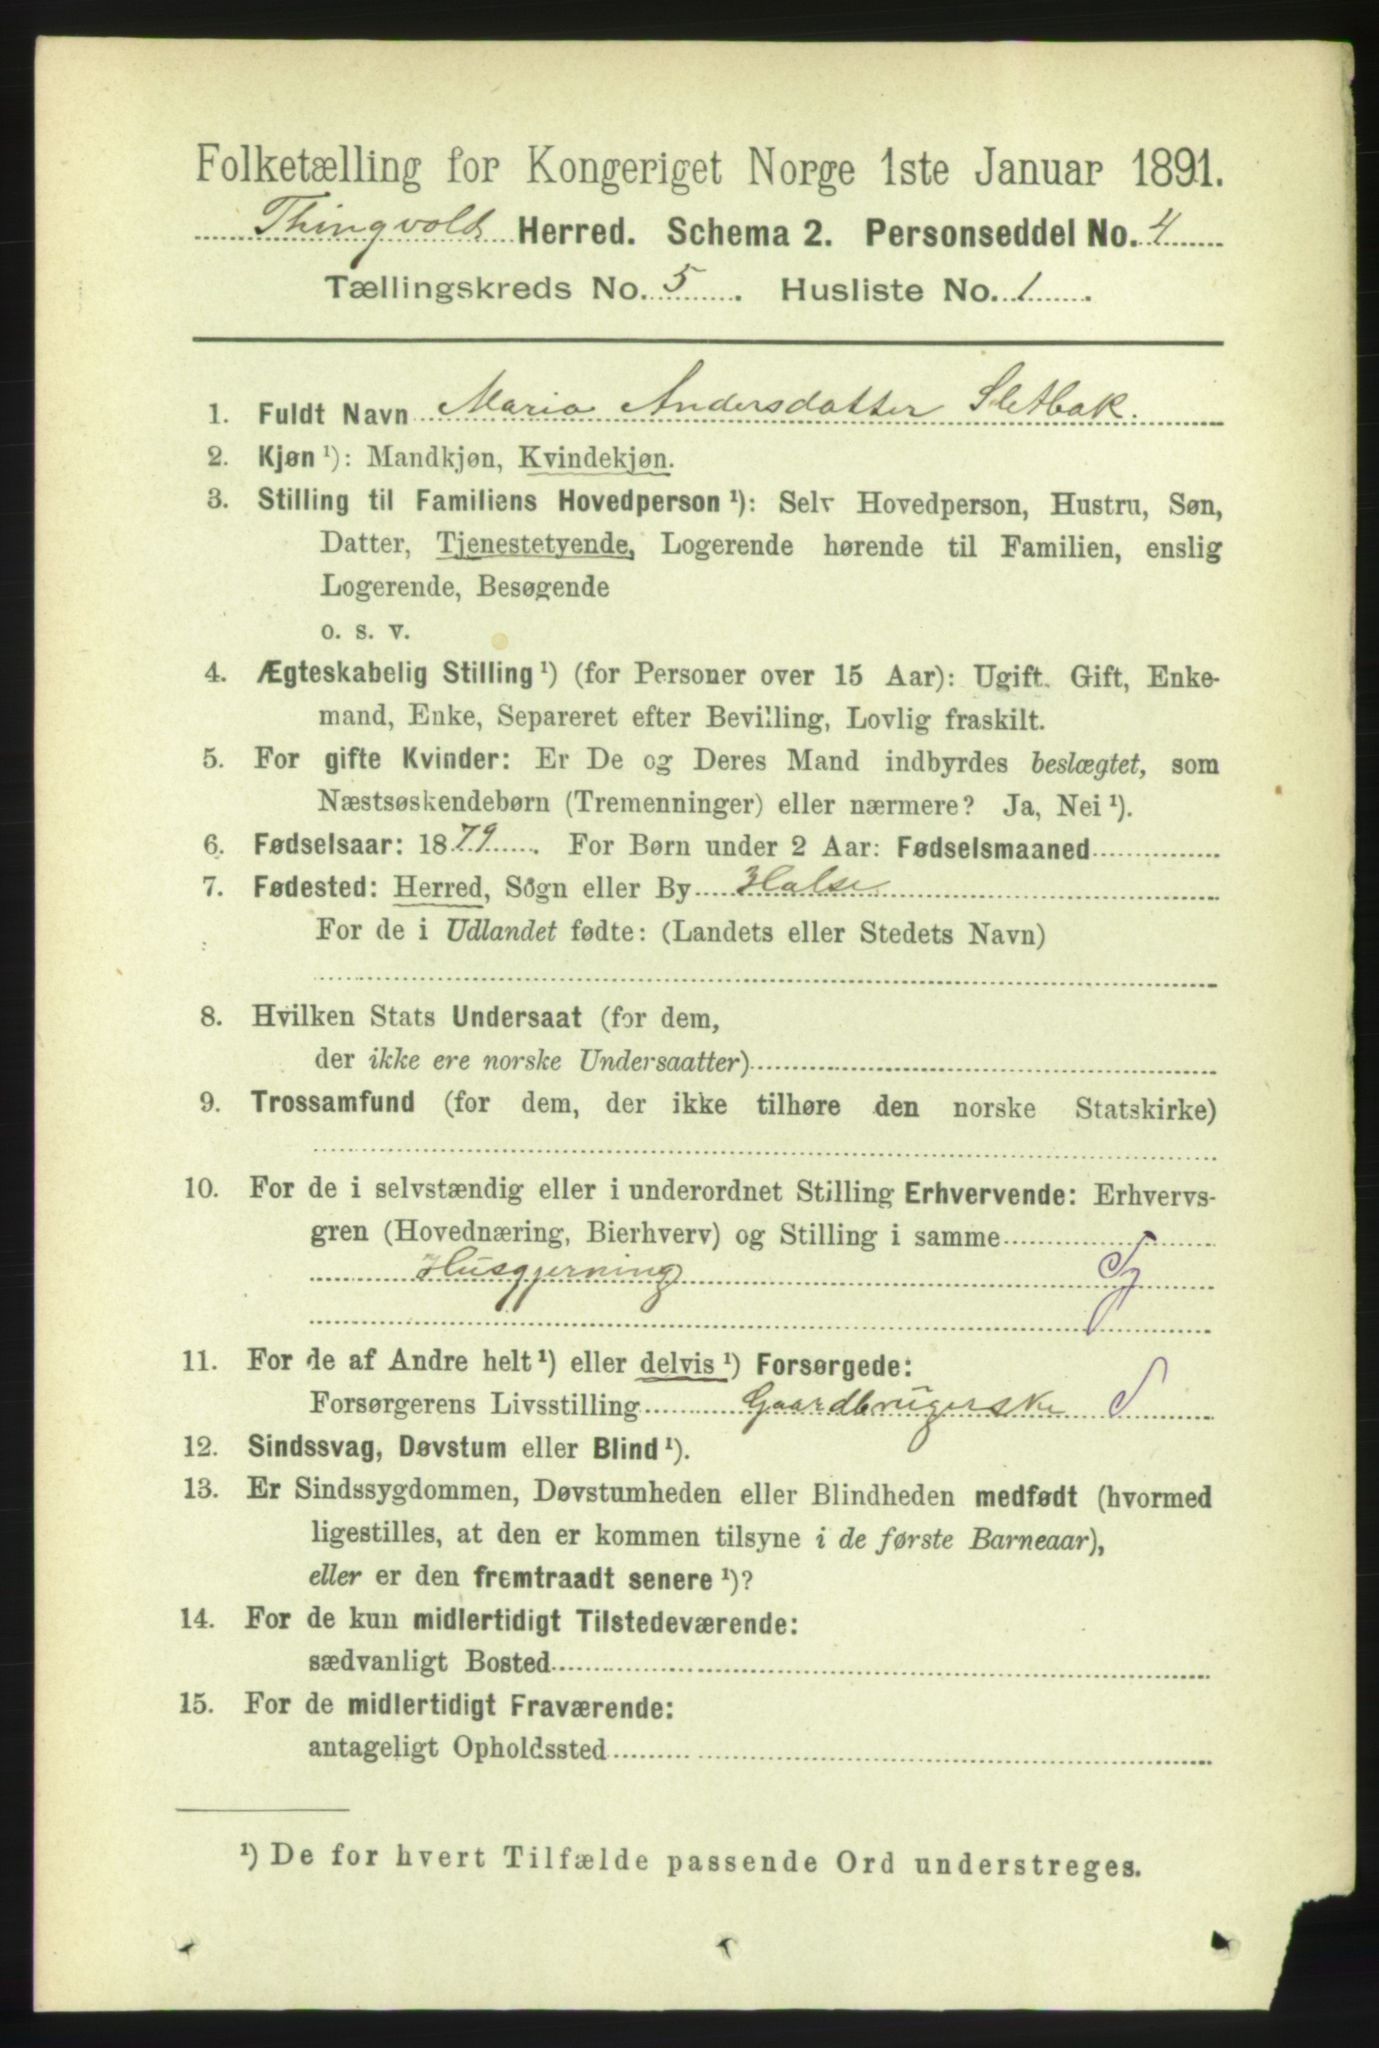 Folketælling for Kongeriget Norge 1ste Januar 1891.
Thingvold Herred. Schema 2. Personseddel No. 4
Tællingskreds No. 5. Husliste No. 1.
1. Fuldt Navn Maria Andersdatter Sletbak.
2. Kjøn ¹): Mandkjøn, Kvindekjøn.
3. Stilling til Familiens Hovedperson ¹): Selv Hovedperson, Hustru, Søn,
Datter, Tjenestetyende, Logerende hørende til Familien, enslig
Logerende, Besøgende
o. s. v.
4. Ægteskabelig Stilling ¹) (for Personer over 15 Aar): Ugift. Gift, Enke-
mand, Enke, Separeret efter Bevilling, Lovlig fraskilt.
5. For gifte Kvinder: Er De og Deres Mand indbyrdes beslægtet, som
Næstsøskendebørn (Tremenninger) eller nærmere? Ja, Nei ¹).
6. Fødselsaar: 1879. For Børn under 2 Aar: Fødselsmaaned
7. Fødested: Herred, Sogn eller By Halse
For de i Udlandet fødte: (Landets eller Stedets Navn)
8. Hvilken Stats Undersaat (for dem,
der ikke ere norske Undersaatter)
9. Trossamfund (for dem, der ikke tilhøre den norske Statskirke)
10. For de i selvstændig eller i underordnet Stilling Erhvervende: Erhvervs-
gren (Hovednæring, Bierhverv) og Stilling i samme
Husgjerning
11. For de af Andre helt ¹) eller delvis ¹) Forsørgede:
Forsørgerens Livsstilling Gaardbrugerske S
12. Sindssvag, Døvstum eller Blind ¹).
13. Er Sindssygdommen, Døvstumheden eller Blindheden medfødt (hvormed
ligestilles, at den er kommen tilsyne i de første Barneaar),
eller er den fremtraadt senere ¹)?
14. For de kun midlertidigt Tilstedeværende:
sædvanligt Bosted
15. For de midlertidigt Fraværende:
antageligt Opholdssted
¹) De for hvert Tilfælde passende Ord understreges.